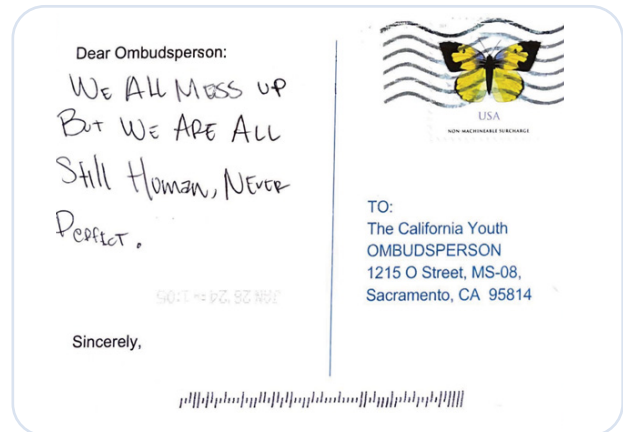 Dear Ombudsperson:
WE ALL MESS UP
BUT WE ARE ALL
Still Human, NEVER
PERFECT.
Sincerely,
USA
NON-MACHINEABLE SURCHARGE
TO:
The California Youth
OMBUDSPERSON
1215 O Street, MS-08,
Sacramento, CA 95814